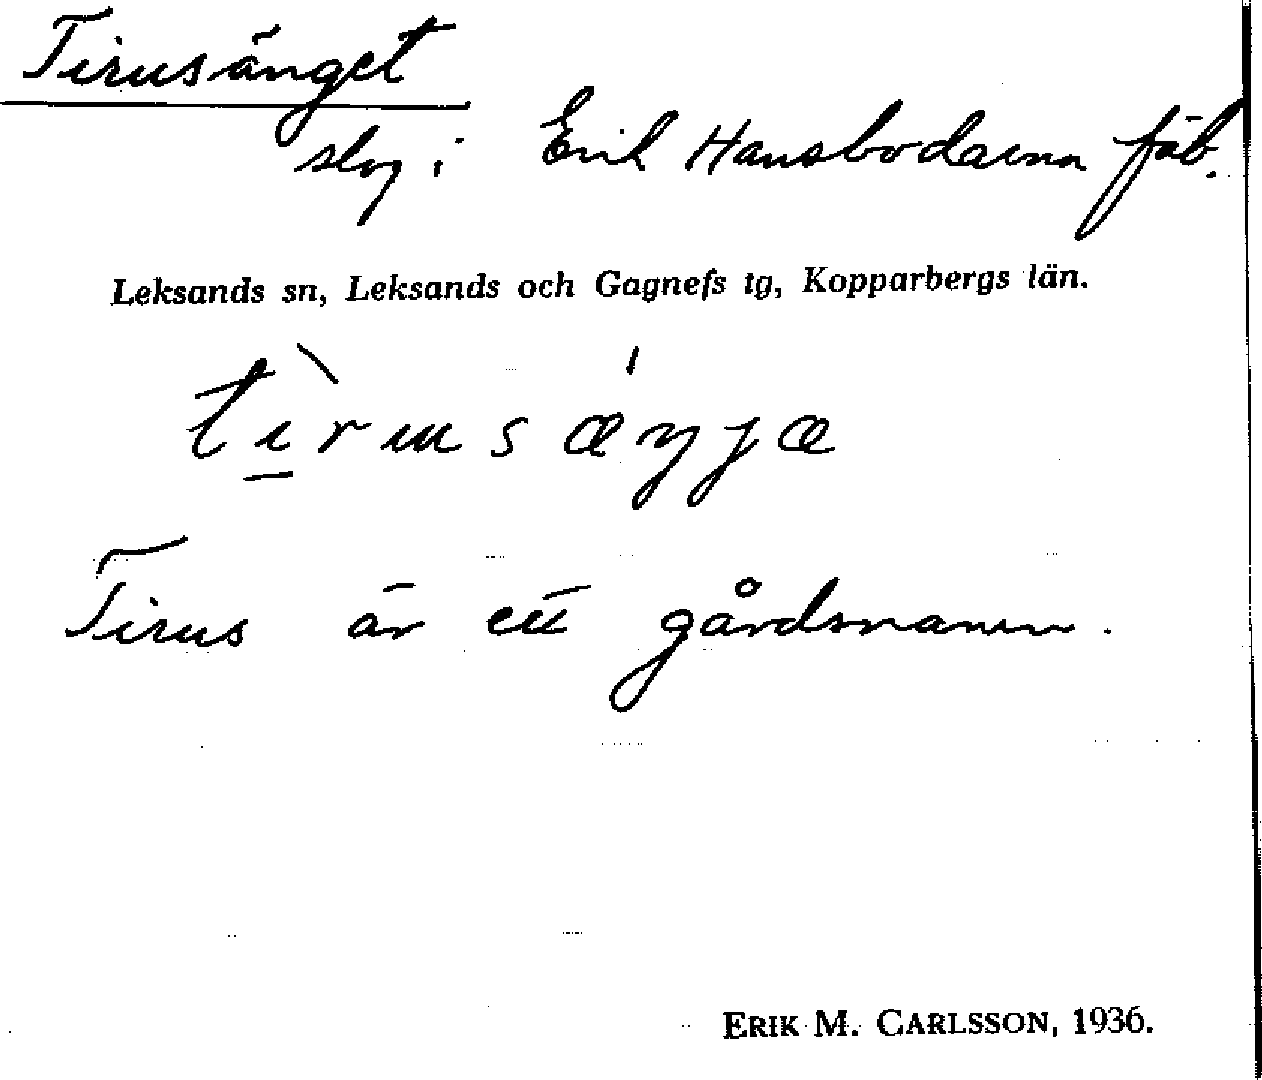 Tirusänget
slog i Erik Hansbodarna fäb.
Leksands sn, Leksands och Gagnefs tg, Kopparbergs län.
tìrusǽŋjæ
Tirus är ett gårdsnamn.
ERIK M. CARLSSON, 1936.